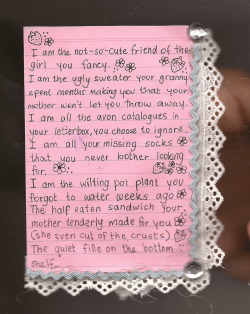 I am the not-so-cute friend of the
girl you fancy.
I am the ugly sweater your granny
spent months making you that your
mother won't let you throw away.
I am all the avon catalogues in
your letterbox, you choose to ignore.
I am all your missing socks
that you never bother looking
for.
I am the wilting pot plant you
forgot to water weeks ago
The half eaten sandwich your
mother tenderly made for you
(she even cut of the crusts)
The quiet fille on the bottom
shelf